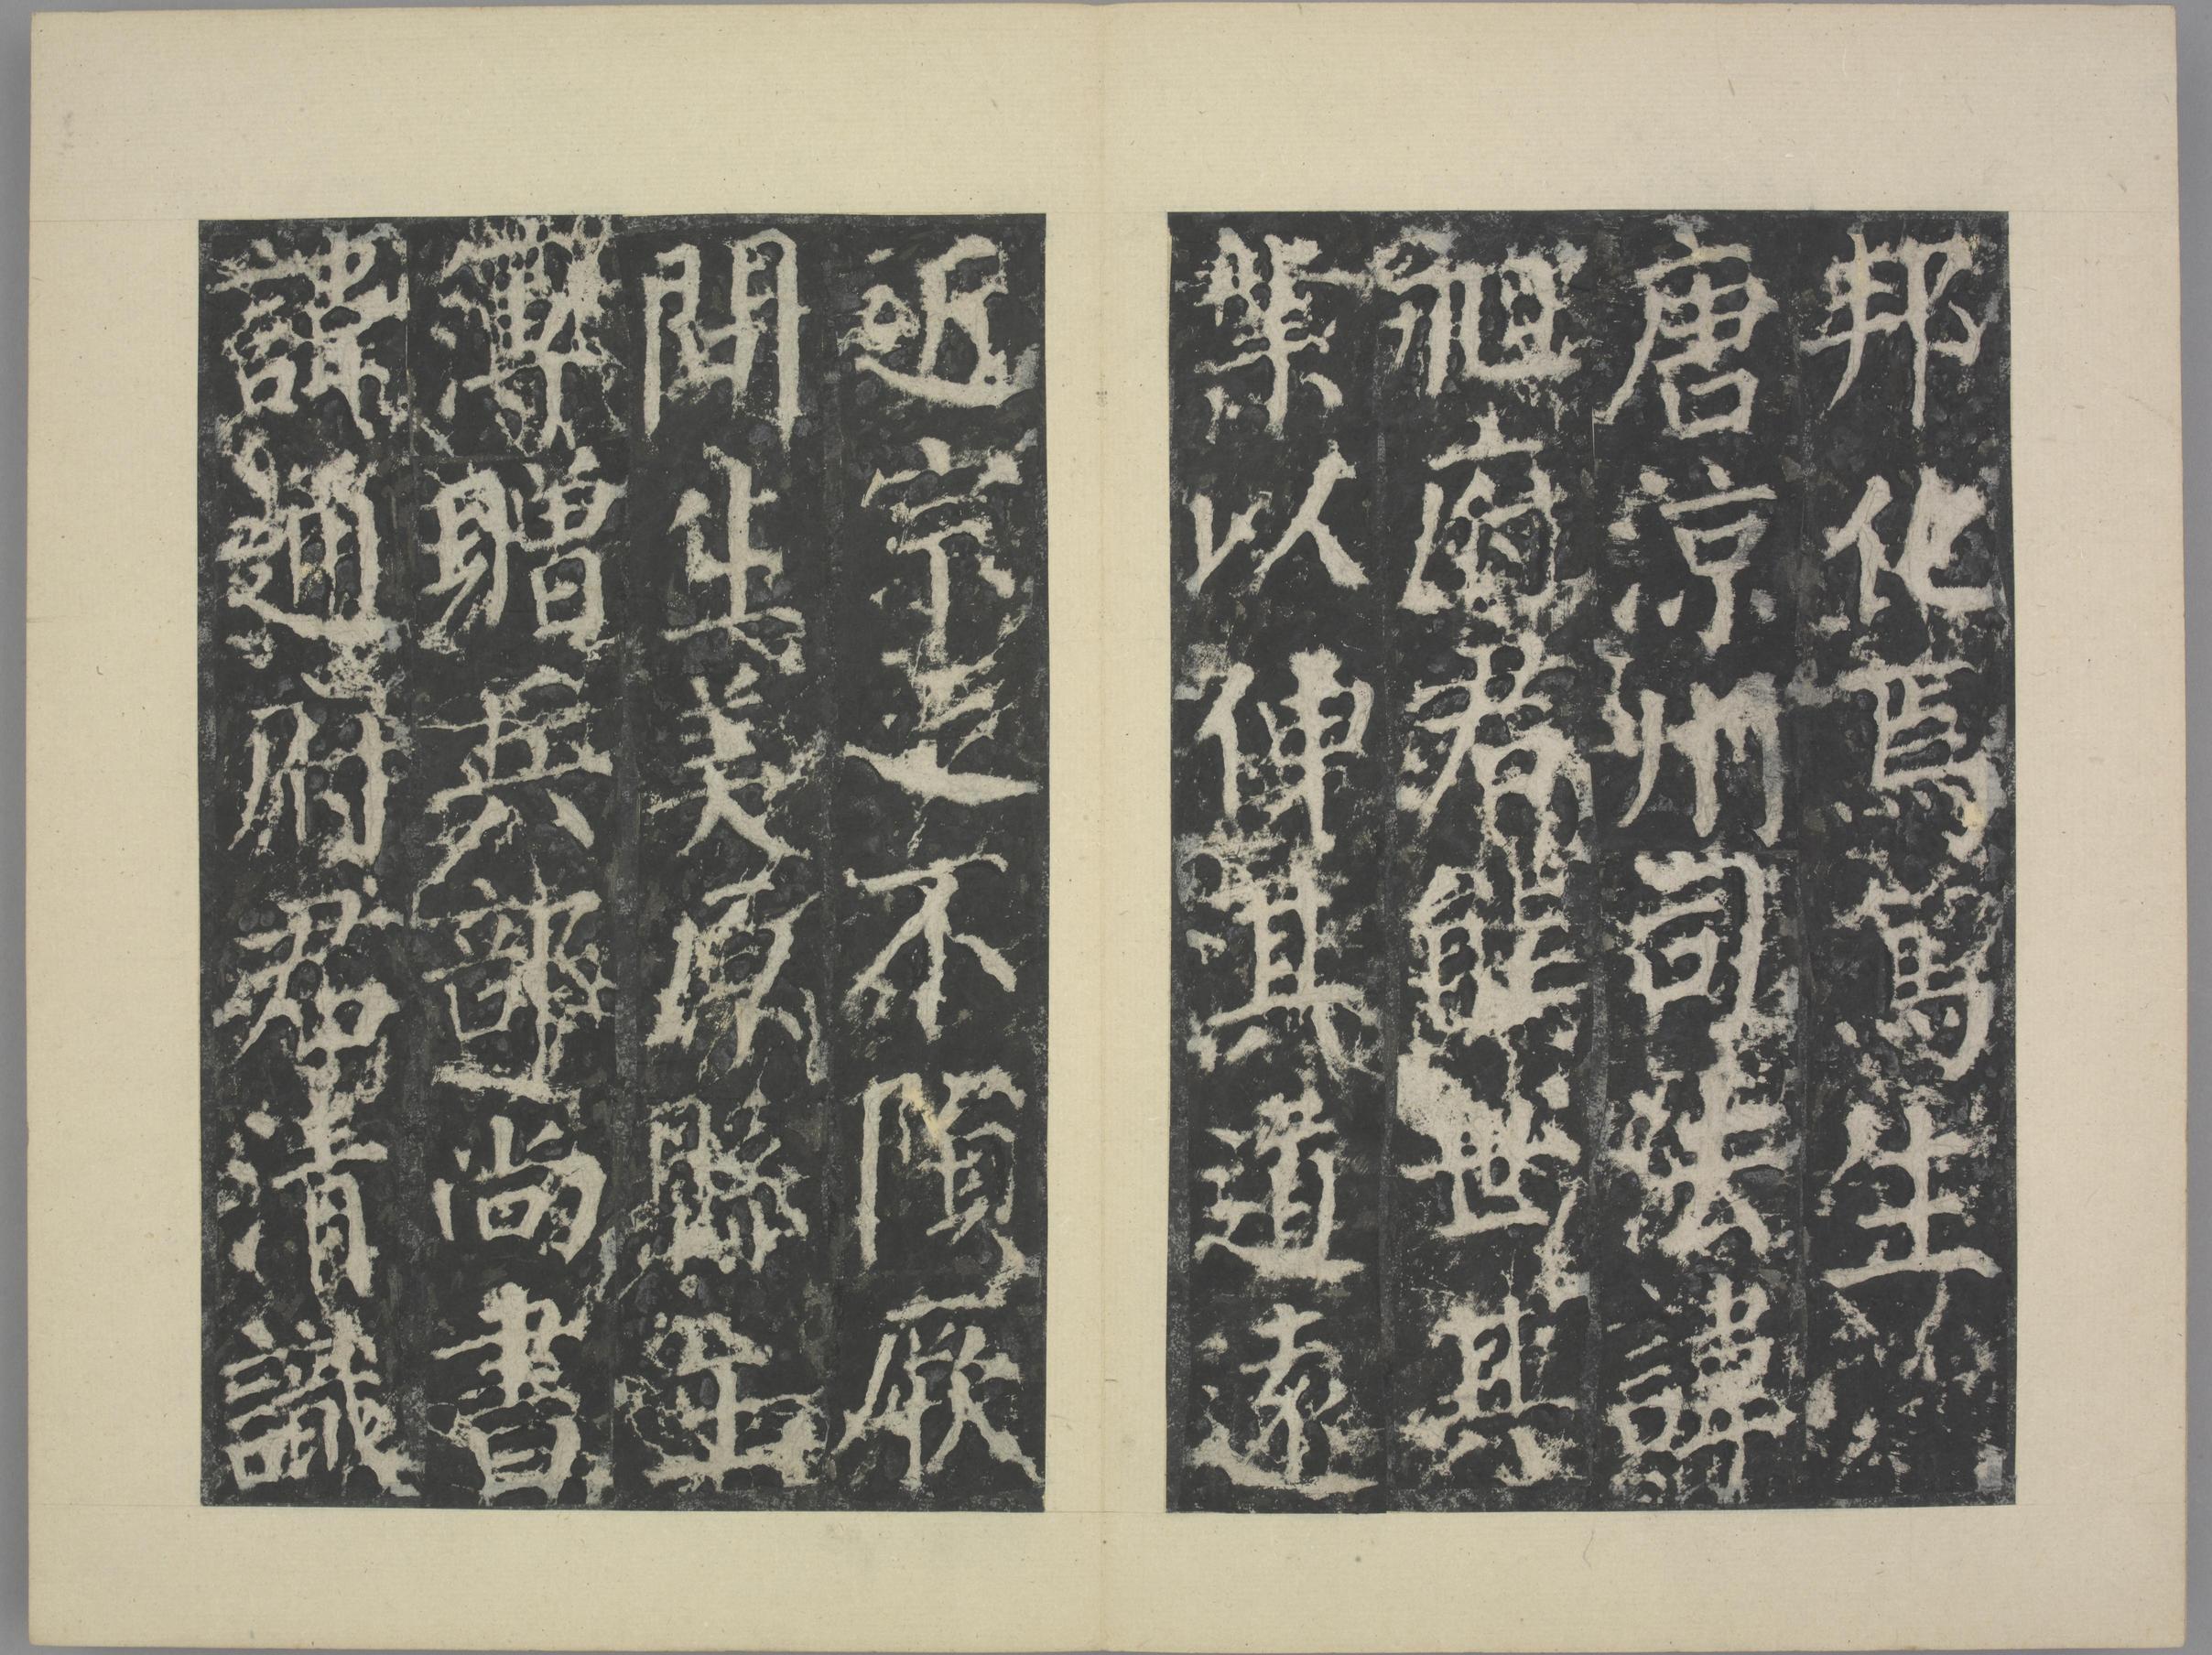 邦化焉篤生
唐涼州司法諱
旭府君能世其
業以傳其道遠
近宗之不隕厥
問生美原縣主
簿贈兵部尚書
諱逌府君清識